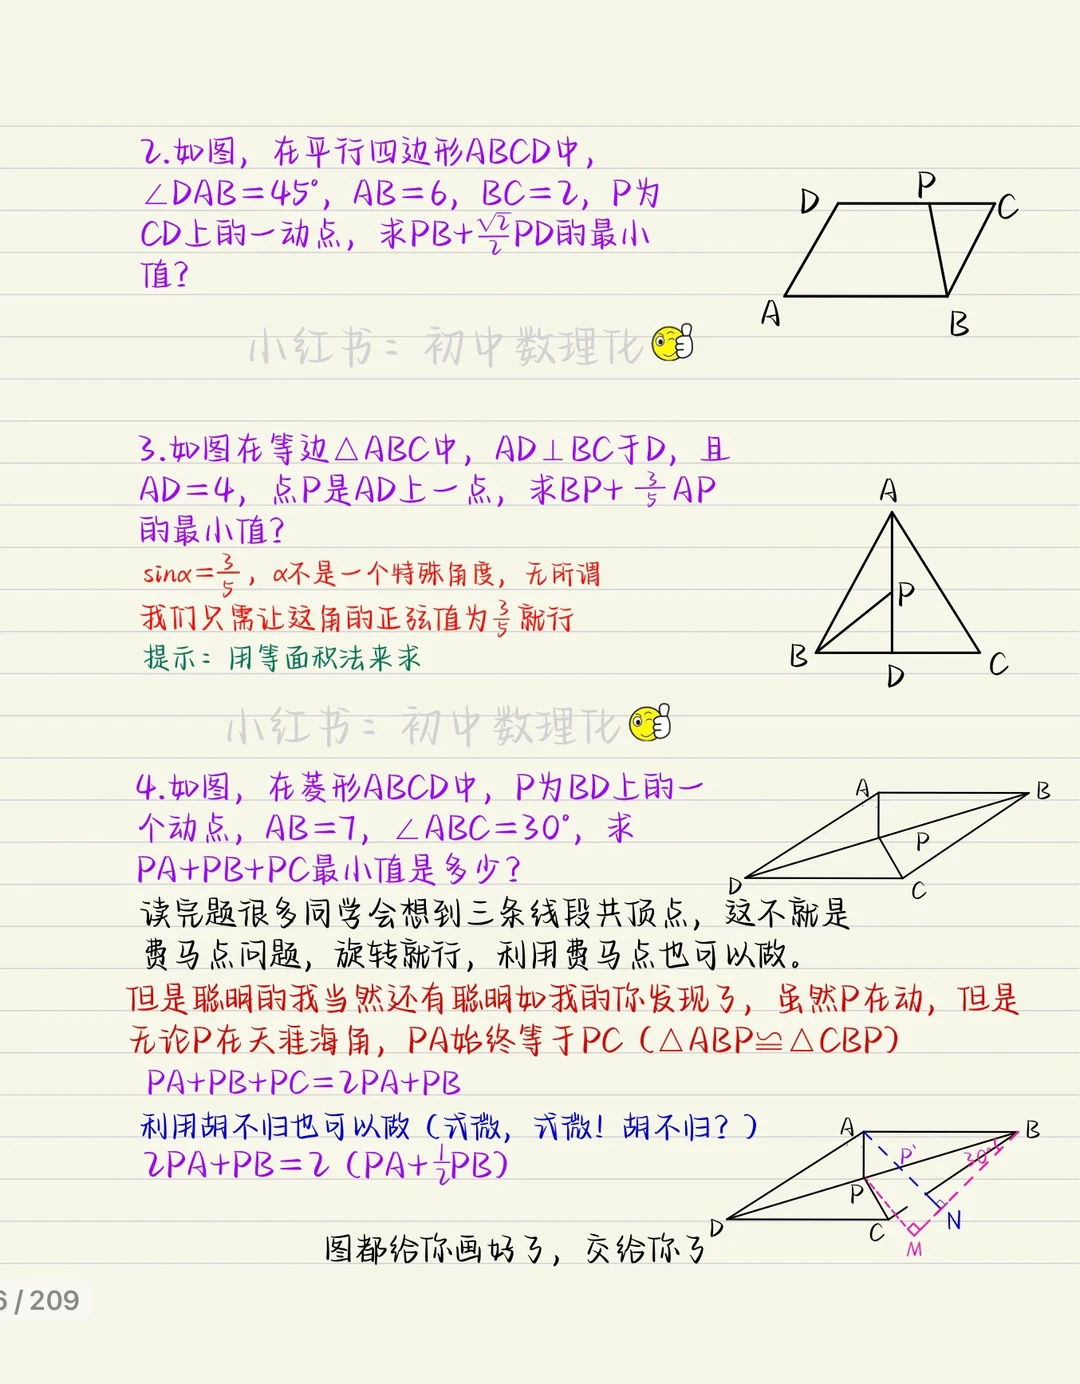 2.如图，在平行四边形ABCD中，
∠DAB=45°，AB=6，BC=2，P为
CD上的一动点，求PB+√2/2PD的最小
值？
D P C
A B
小红书：初中数理化
3.如图在等边△ABC中，AD⊥BC于D，且
AD=4，点P是AD上一点，求BP+3/5AP
的最小值？
sinα=3/5，α不是一个特殊角度，无所谓
我们只需让这角的正弦值为3/5就行
提示：用等面积法来求
A
P
B D C
小红书：初中数理化
4.如图，在菱形ABCD中，P为BD上的一
个动点，AB=7，∠ABC=30°，求
PA+PB+PC最小值是多少？
A B
P
D C
读完题很多同学会想到三条线段共顶点，这不就是
费马点问题，旋转就行，利用费马点也可以做。
但是聪明的我当然还有聪明如我的你发现了，虽然P在动，但是
无论P在天涯海角，PA始终等于PC（△ABP≌△CBP）
PA+PB+PC=2PA+PB
利用胡不归也可以做（式微，式微！胡不归？）
2PA+PB=2（PA+1/2PB）
A B
P' 30°
P
D C N
M
图都给你画好了，交给你了
6/209